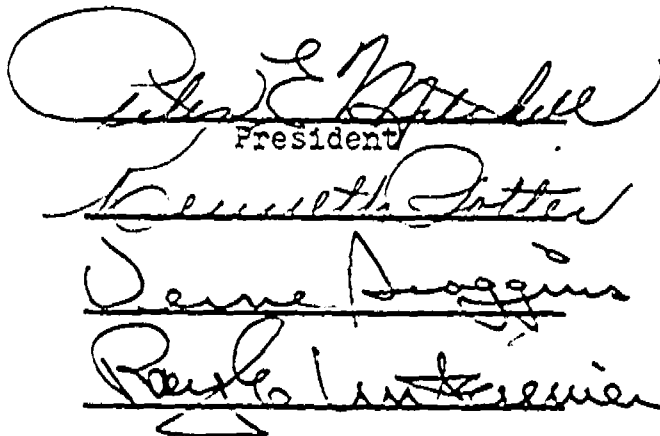 Peter E Mitchell
President
Kenneth Potter
Verne Scoggins